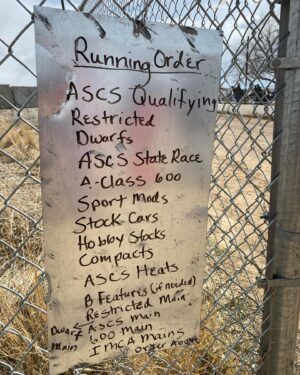 Running Order
ASCS Qualifying
Restricted
Dwarfs
ASCS State Race
A-Class 600
Sport Mods
Stock Cars
Hobby Stocks
Compacts
ASCS Heats
B Features (if needed)
Restricted Main
Dwarf ASCS Main
Main 600 Main
IMCA Mains
order Above